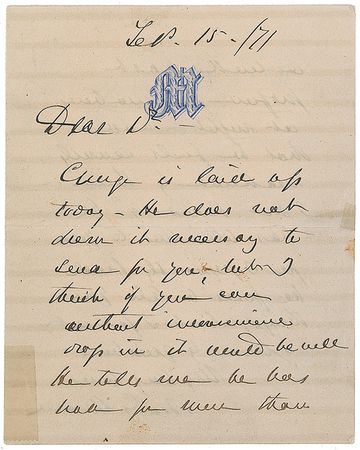 Sep. 15-/71
Dear Dr. –
is laid up
today – He does not
deem it necessary to
send for you, but I
think if you can
without inconvenience
drop in it would be well
He tells me he has
had for more than